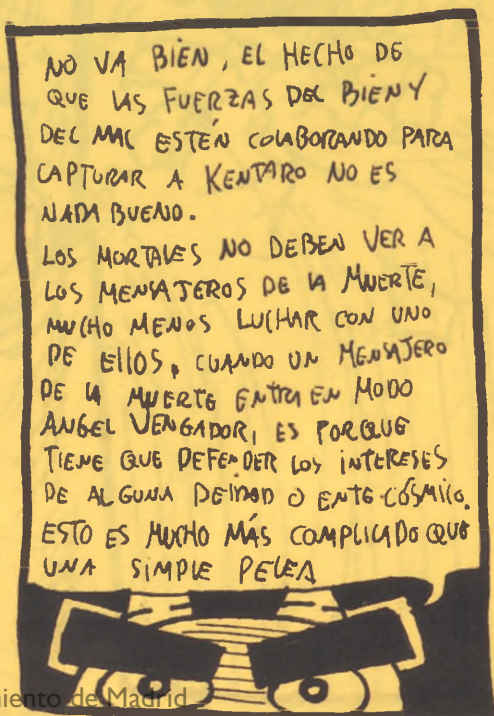 NO VA BIEN, EL HECHO DE
QUE LAS FUERZAS DEL BIEN Y
DEL MAL ESTÉN COLABORANDO PARA
CAPTURAR A KENTARO NO ES
NADA BUENO.
LOS MORTALES NO DEBEN VER A
LOS MENSAJEROS DE LA MUERTE,
MUCHO MENOS LUCHAR CON UNO
DE ELLOS, CUANDO UN MENSAJERO
DE LA MUERTE ENTRA EN MODO
ANGEL VENGADOR, ES PORQUE
TIENE QUE DEFENDER LOS INTERESES
DE ALGUNA DEIDAD O ENTE CÓSMICO.
ESTO ES MUCHO MÁS COMPLICADO QUE
UNA SIMPLE PELEA
miento de Madrid